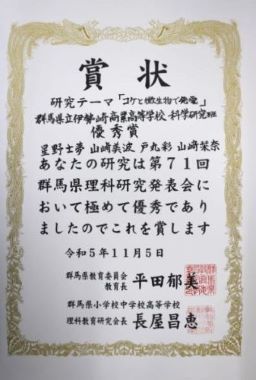 賞状
研究テーマ「コケと微生物で発電」
群馬県立伊勢崎商業高等学校・科学研究班
優秀賞
星野士夢 山崎美波 戸丸彩 山崎栞奈
あなたの研究は第71回
群馬県理科研究発表会に
おいて極めて優秀であり
ましたのでこれを賞します
令和5年11月5日
群馬県教育委員会
教育長 平田郁美
群馬県小学校中学校高等学校
理科教育研究会長 長屋昌恵